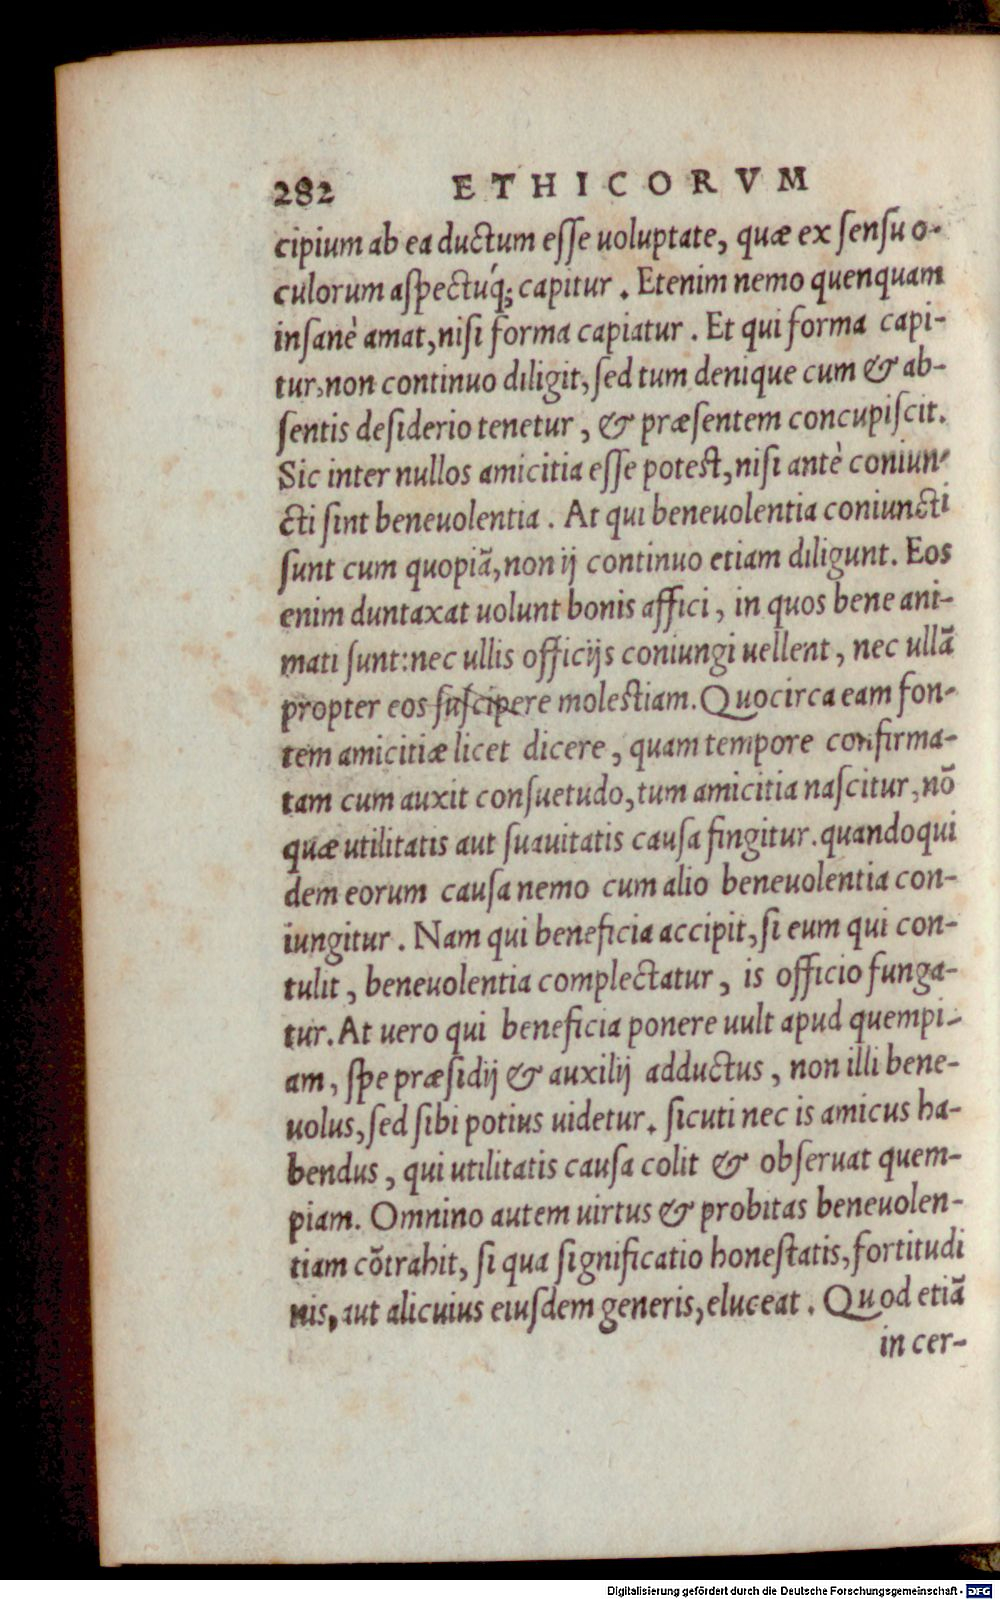 282 ETHICORVM
cipium ab ea ductum esse uoluptate, quæ ex sensu o-
culorum aspectúq; capitur. Etenim nemo quenquam
insanè amat, nisi forma capiatur. Et qui forma capi-
tur, non continuo diligit, sed tum denique cum & ab-
sentis desiderio tenetur, & præsentem concupiscit.
Sic inter nullos amicitia esse potest, nisi antè coniun-
cti sint beneuolentia. At qui beneuolentia coniuncti
sunt cum quopiã, non ij continuo etiam diligunt. Eos
enim duntaxat uolunt bonis affici, in quos bene ani-
mati sunt: nec ullis officijs coniungi uellent, nec ullã
propter eos suscipere molestiam. Quocirca eam fon-
tem amicitiæ licet dicere, quam tempore confirma-
tam cum auxit consuetudo, tum amicitia nascitur, nõ
quæ utilitatis aut suauitatis causa fingitur. quandoqui
dem eorum causa nemo cum alio beneuolentia con-
iungitur. Nam qui beneficia accipit, si eum qui con-
tulit, beneuolentia complectatur, is officio funga-
tur. At uero qui beneficia ponere uult apud quempi-
am, spe præsidij & auxilij adductus, non illi bene-
uolus, sed sibi potius uidetur. sicuti nec is amicus ha-
bendus, qui utilitatis causa colit & obseruat quem-
piam. Omnino autem uirtus & probitas beneuolen-
tiam cõtrahit, si qua significatio honestatis, fortitudi
nis, aut alicuius eiusdem generis, eluceat. Quod etiã
in cer-
Digitalisierung gefördert durch die Deutsche Forschungsgemeinschaft - DFG